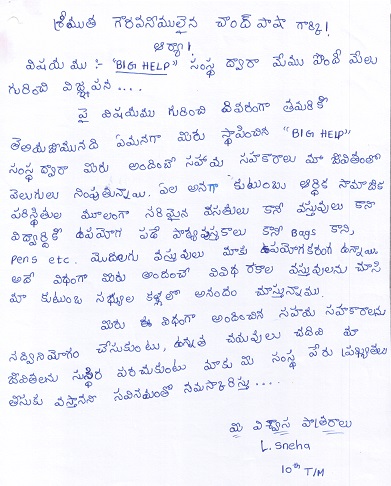 శ్రీయుత గౌరవనీయులైన చాంద్ పాషా గార్కి!
ఆర్యా!
విషయము :- "BIG HELP" సంస్థ ద్వారా మేము పొందే మేలు
గురించి విజ్ఞాపన ....
పై విషయము గురించి వివరంగా తమరికి
తెలియజేయునది ఏమనగా మీరు స్థాపించిన "BIG HELP"
సంస్థ ద్వారా మీరు అందించే సహాయ సహకారాలు మా జీవితంలో
వెలుగులు నింపుతున్నాయి. ఏల అనగా కుటుంబ ఆర్థిక సామాజిక
పరిస్థితుల మూలంగా సరియైన వసతులు కానీ వస్తువులు కానీ
విద్యార్థికి ఉపయోగ పడే పాఠ్యపుస్తకాలు కానీ Bags కానీ,
Pens etc. మొదలగు వస్తువులు మాకు ఉపయోగకరంగా ఉన్నాయి.
అదే విధంగా మీరు అందించే వివిధ రకాల వస్తువులను చూసి
మా కుటుంబ సభ్యుల కళ్లలో ఆనందం చూస్తున్నాము.
మీరు ఈ విధంగా అందించిన సహాయ సహకారాలను
సద్వినియోగం చేసుకుంటు, ఉన్నత చదువులు చదివి మా
జీవితాలను సుస్థిర పరచుకుంటు మాకు మీ సంస్థ పేరు ప్రఖ్యాతులు
తీసుకు వస్తానని సవినయంతో నమస్కరిస్తు ....
మీ విశ్వాస పాత్రురాలు
L. Sneha
10th T/M